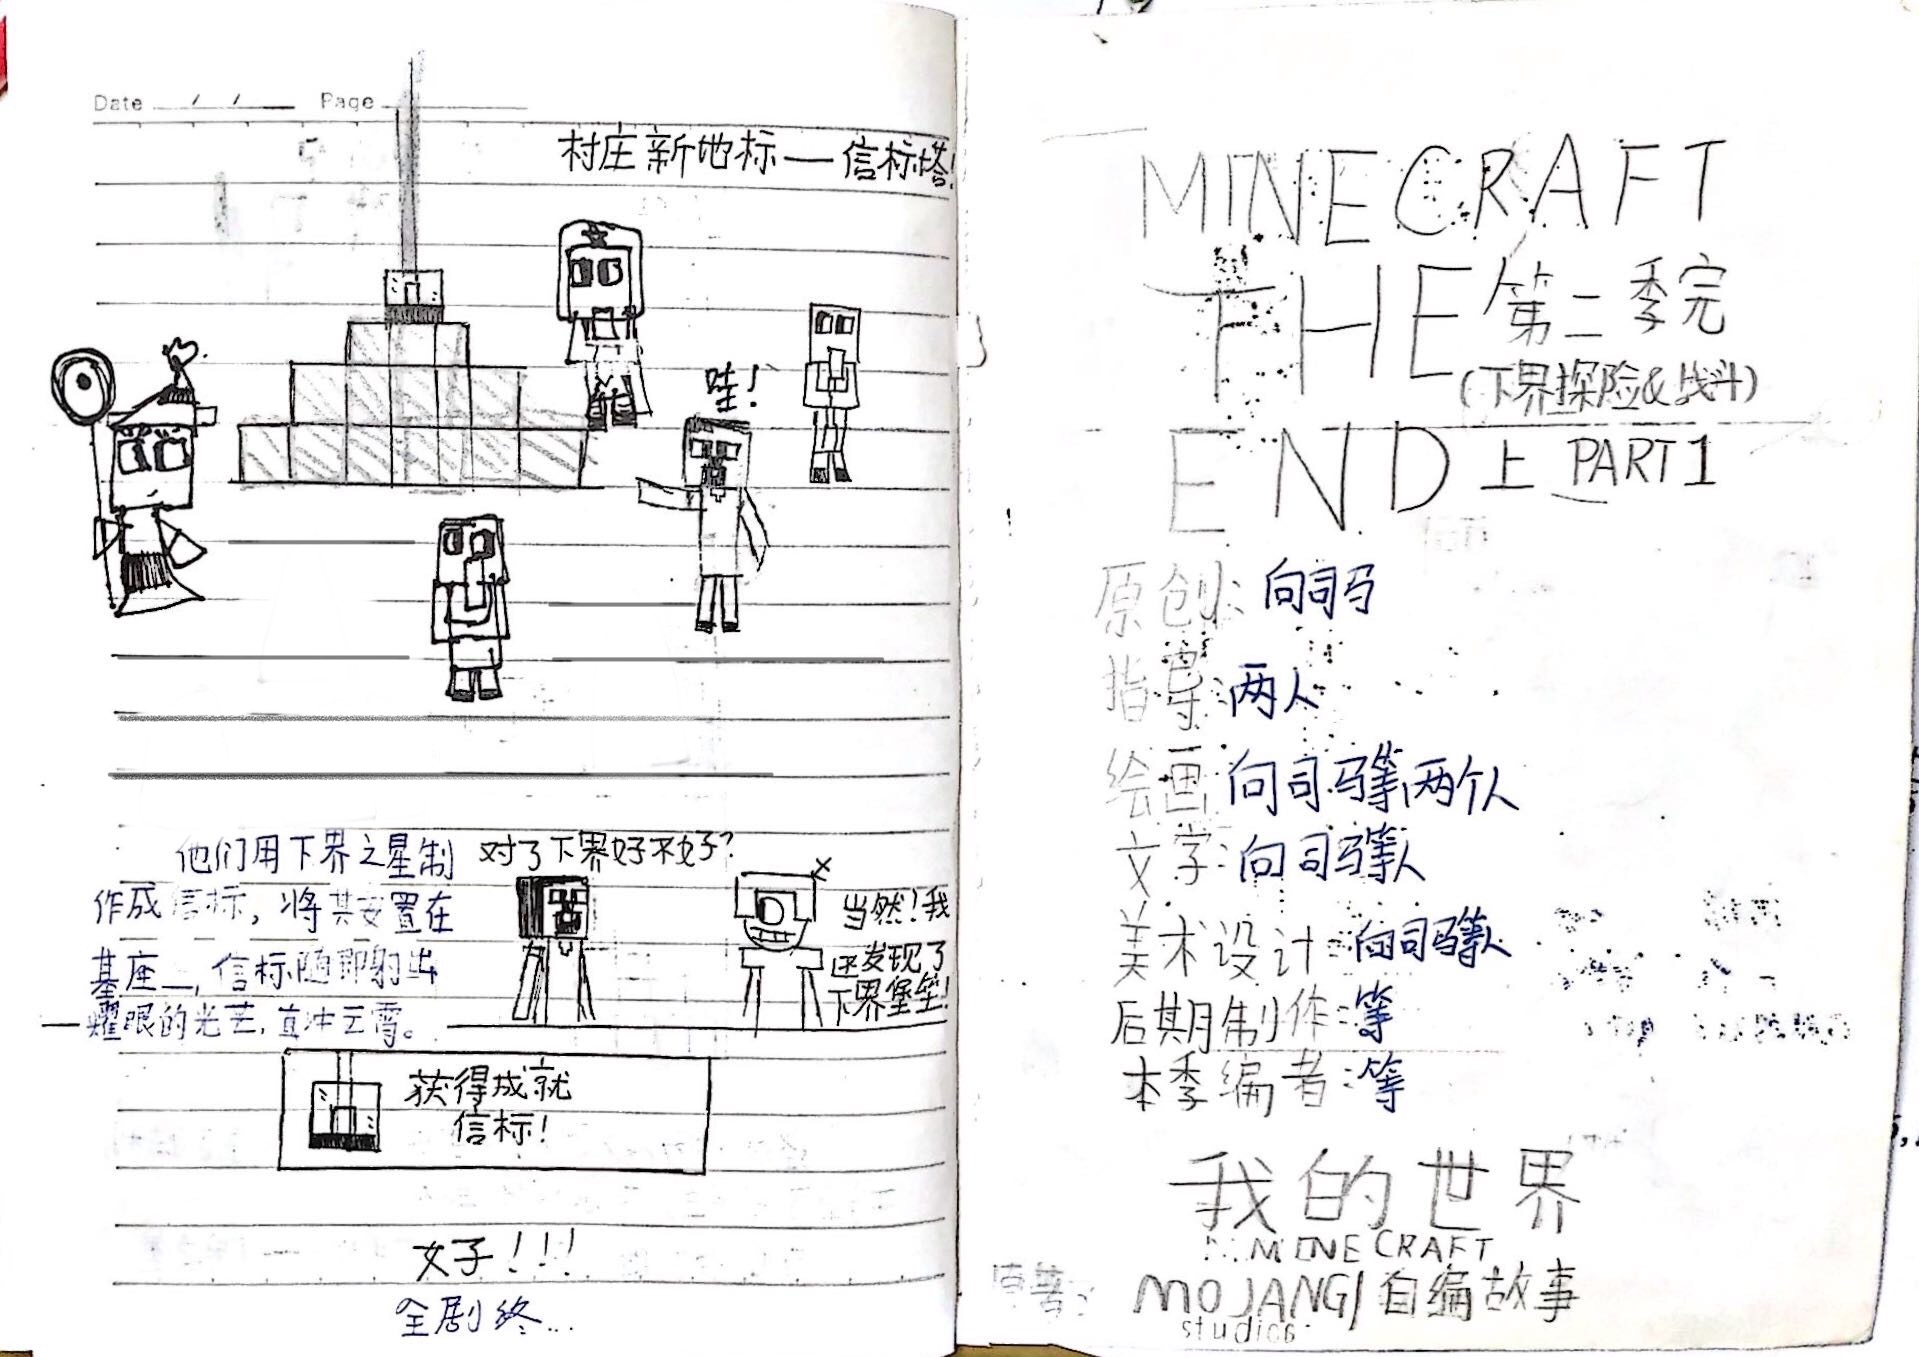 Date / / Page
村庄新地标——信标塔!
哇!
他们用下界之星制
作成信标,将其安置在
基座上,信标随即射出
耀眼的光芒,直冲云霄。
对了下界好不好?
当然!我
还发现了
下界堡垒!
获得成就
信标!
好!!!
全剧终...
MINECRAFT
THE 第二季完
(下界探险&战斗)
END 上 PART1
原创:向司马
指导:两人
绘画:向司马等两个人
文学:向司马等人
美术设计:向司马等人
后期制作:等
本季编者:等
我的世界
MINECRAFT
原著: MOJANG/自编故事
studios